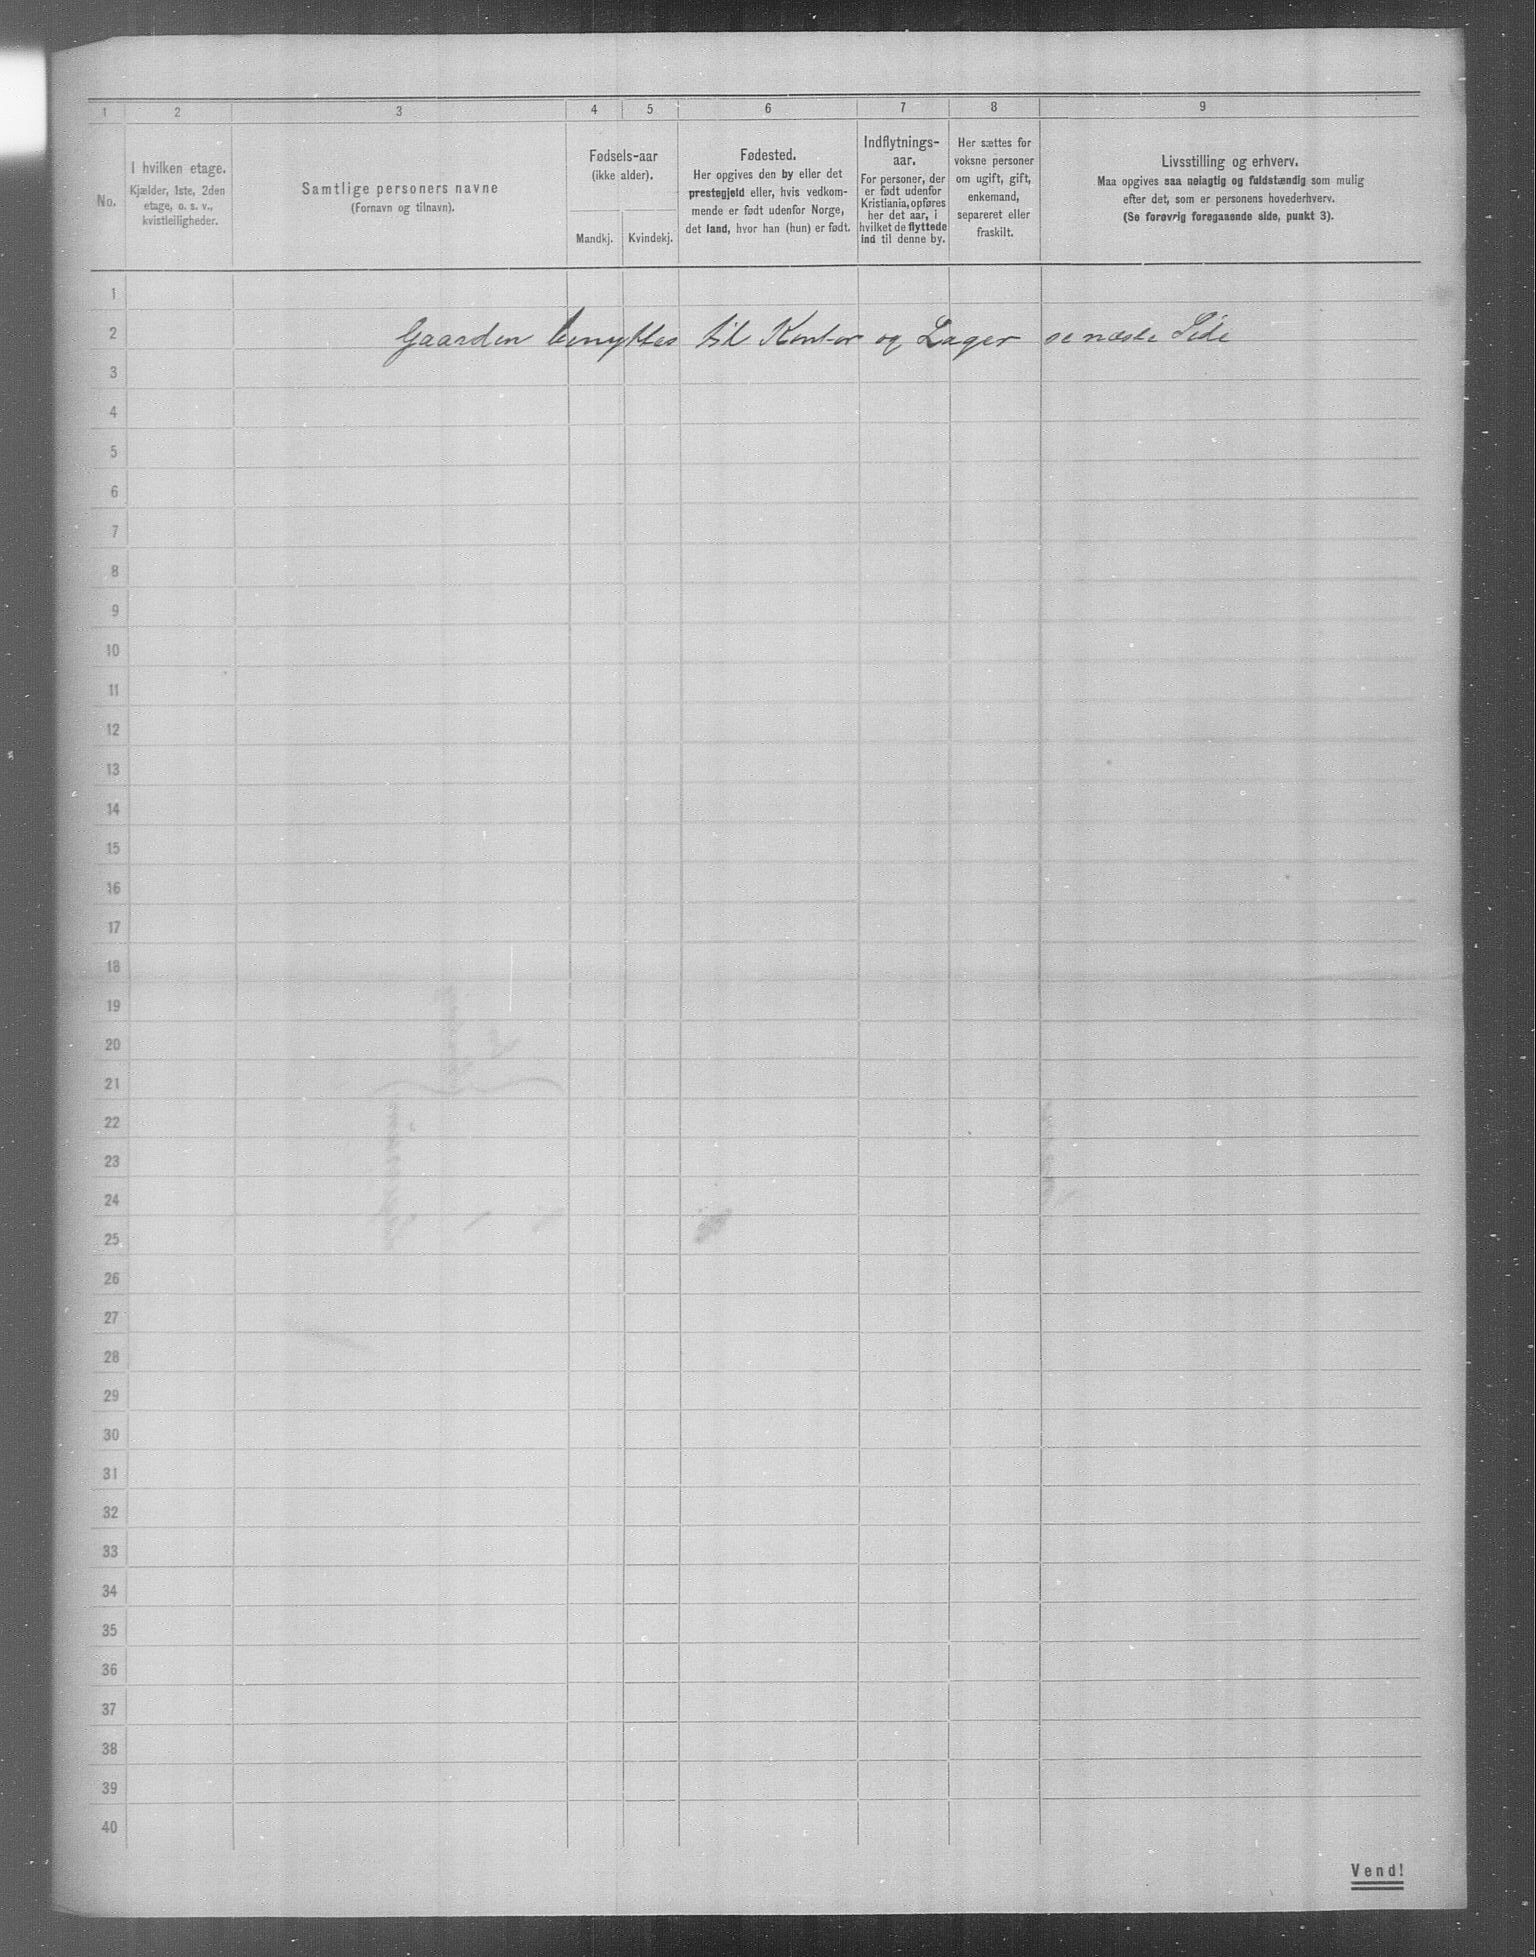 1 2 3 4 5 6 7 8 9
No.
I hvilken etage.
Kjælder, 1ste, 2den
etage, o. s. v.,
kvistleiligheder.
Samtlige personers navne
(Fornavn og tilnavn).
Fødsels-aar
(ikke alder).
Mandkj. Kvindekj.
Fødested.
Her opgives den by eller det
prestegjeld eller, hvis vedkom-
mende er født udenfor Norge,
det land, hvor han (hun) er født.
Indflytnings-
aar.
For personer, der
er født udenfor
Kristiania, opføres
her det aar, i
hvilket de flyttede
ind til denne by.
Her sættes for
voksne personer
om ugift, gift,
enkemand,
separeret eller
fraskilt.
Livsstilling og erhverv.
Maa opgives saa nøiagtig og fuldstændig som mulig
efter det, som er personens hovederhverv.
(Se forøvrig foregaaende side, punkt 3).
1
2 Gaarden benyttes til Kontor og Lager se næste Side
3
4
5
6
7
8
9
10
11
12
13
14
15
16
17
18
19
20
21
22
23
24
25
26
27
28
29
30
31
32
33
34
35
36
37
38
39
40
Vend!